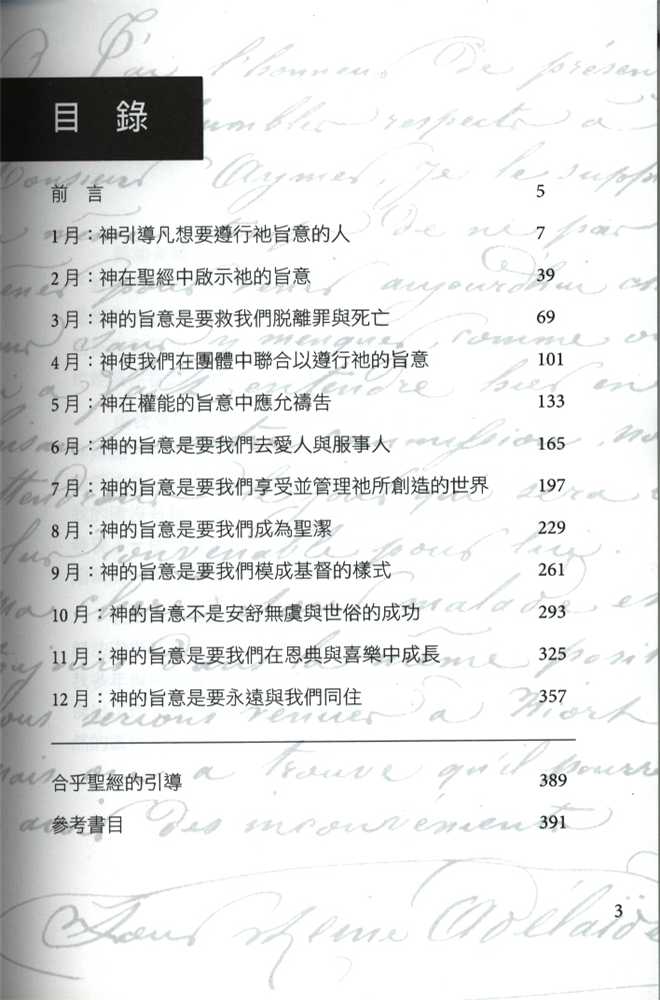 目 錄
前 言 5
1 月：神引導凡想要遵行祂旨意的人 7
2 月：神在聖經中啟示祂的旨意 39
3 月：神的旨意是要救我們脫離罪與死亡 69
4 月：神使我們在團體中聯合以遵行祂的旨意 101
5 月：神在權能的旨意中應允禱告 133
6 月：神的旨意是要我們去愛人與服事人 165
7 月：神的旨意是要我們享受並管理祂所創造的世界 197
8 月：神的旨意是要我們成為聖潔 229
9 月：神的旨意是要我們模成基督的樣式 261
10 月：神的旨意不是安舒無虞與世俗的成功 293
11 月：神的旨意是要我們在恩典與喜樂中成長 325
12 月：神的旨意是要永遠與我們同住 357
合乎聖經的引導 389
參考書目 391
3